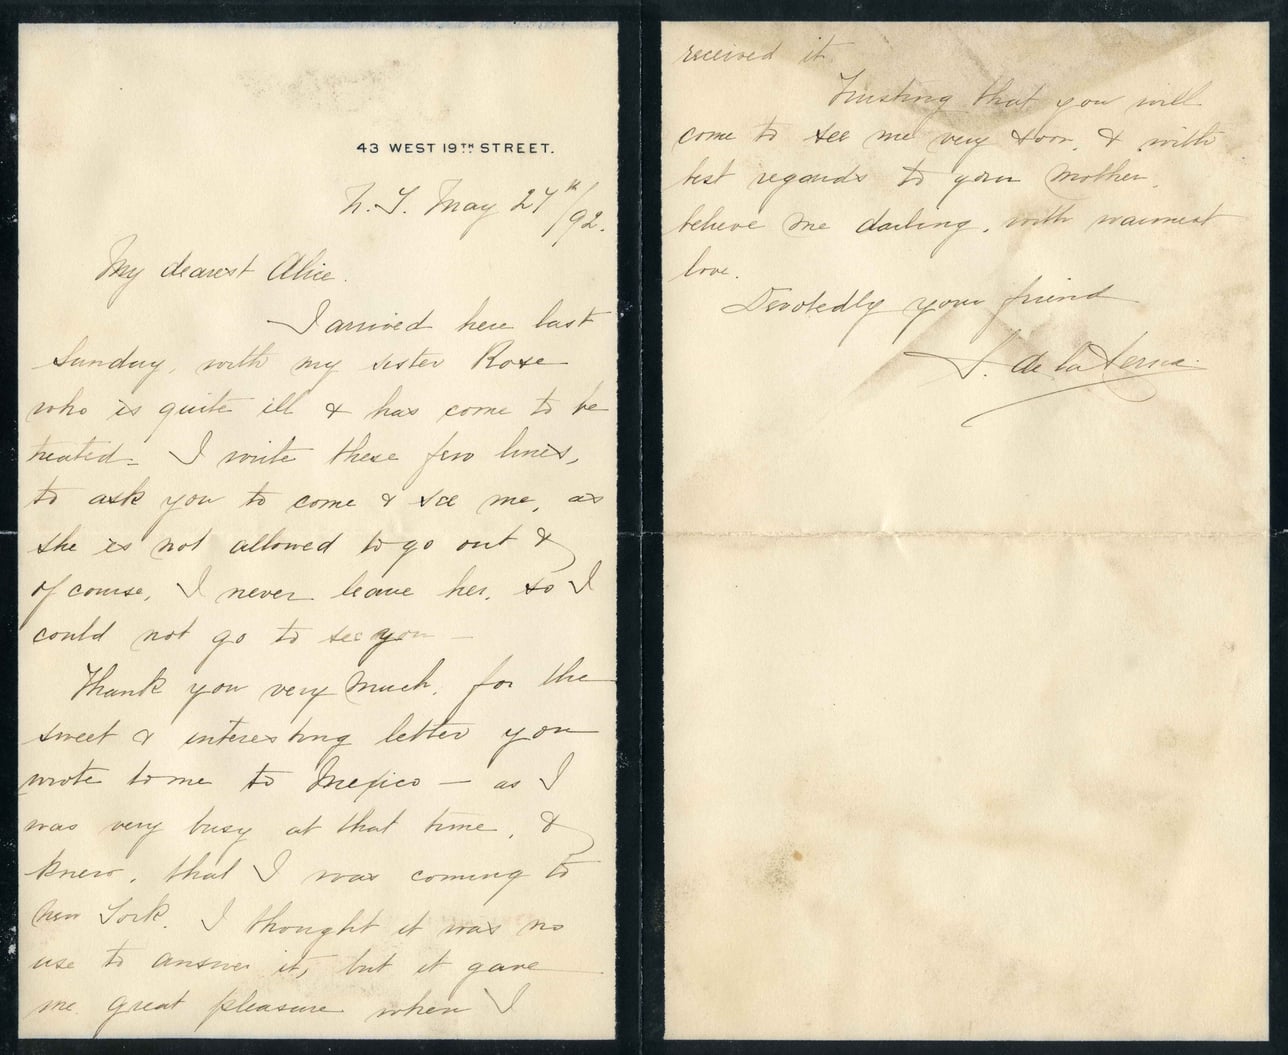 43 WEST 19TH STREET.
N. Y. May 27th/92.
My dearest Alice.
I arrived here last
Sunday, with my sister Rose
who is quite ill & has come to be
treated - I write these few lines,
to ask you to come & see me, as
she is not allowed to go out &
of course, I never leave her, so I
could not go to see you -
Thank you very much, for the
sweet & interesting letter you
wrote to me to Mexico - as I
was very busy at that time, &
knew, that I was coming to
New York. I thought it was no
use to answer it, but it gave
me great pleasure when I
received it
Trusting that you will
come to see me very soon, & with
best regards to your mother,
believe me darling, with warmest
love.
Devotedly your friend
de la Serna.